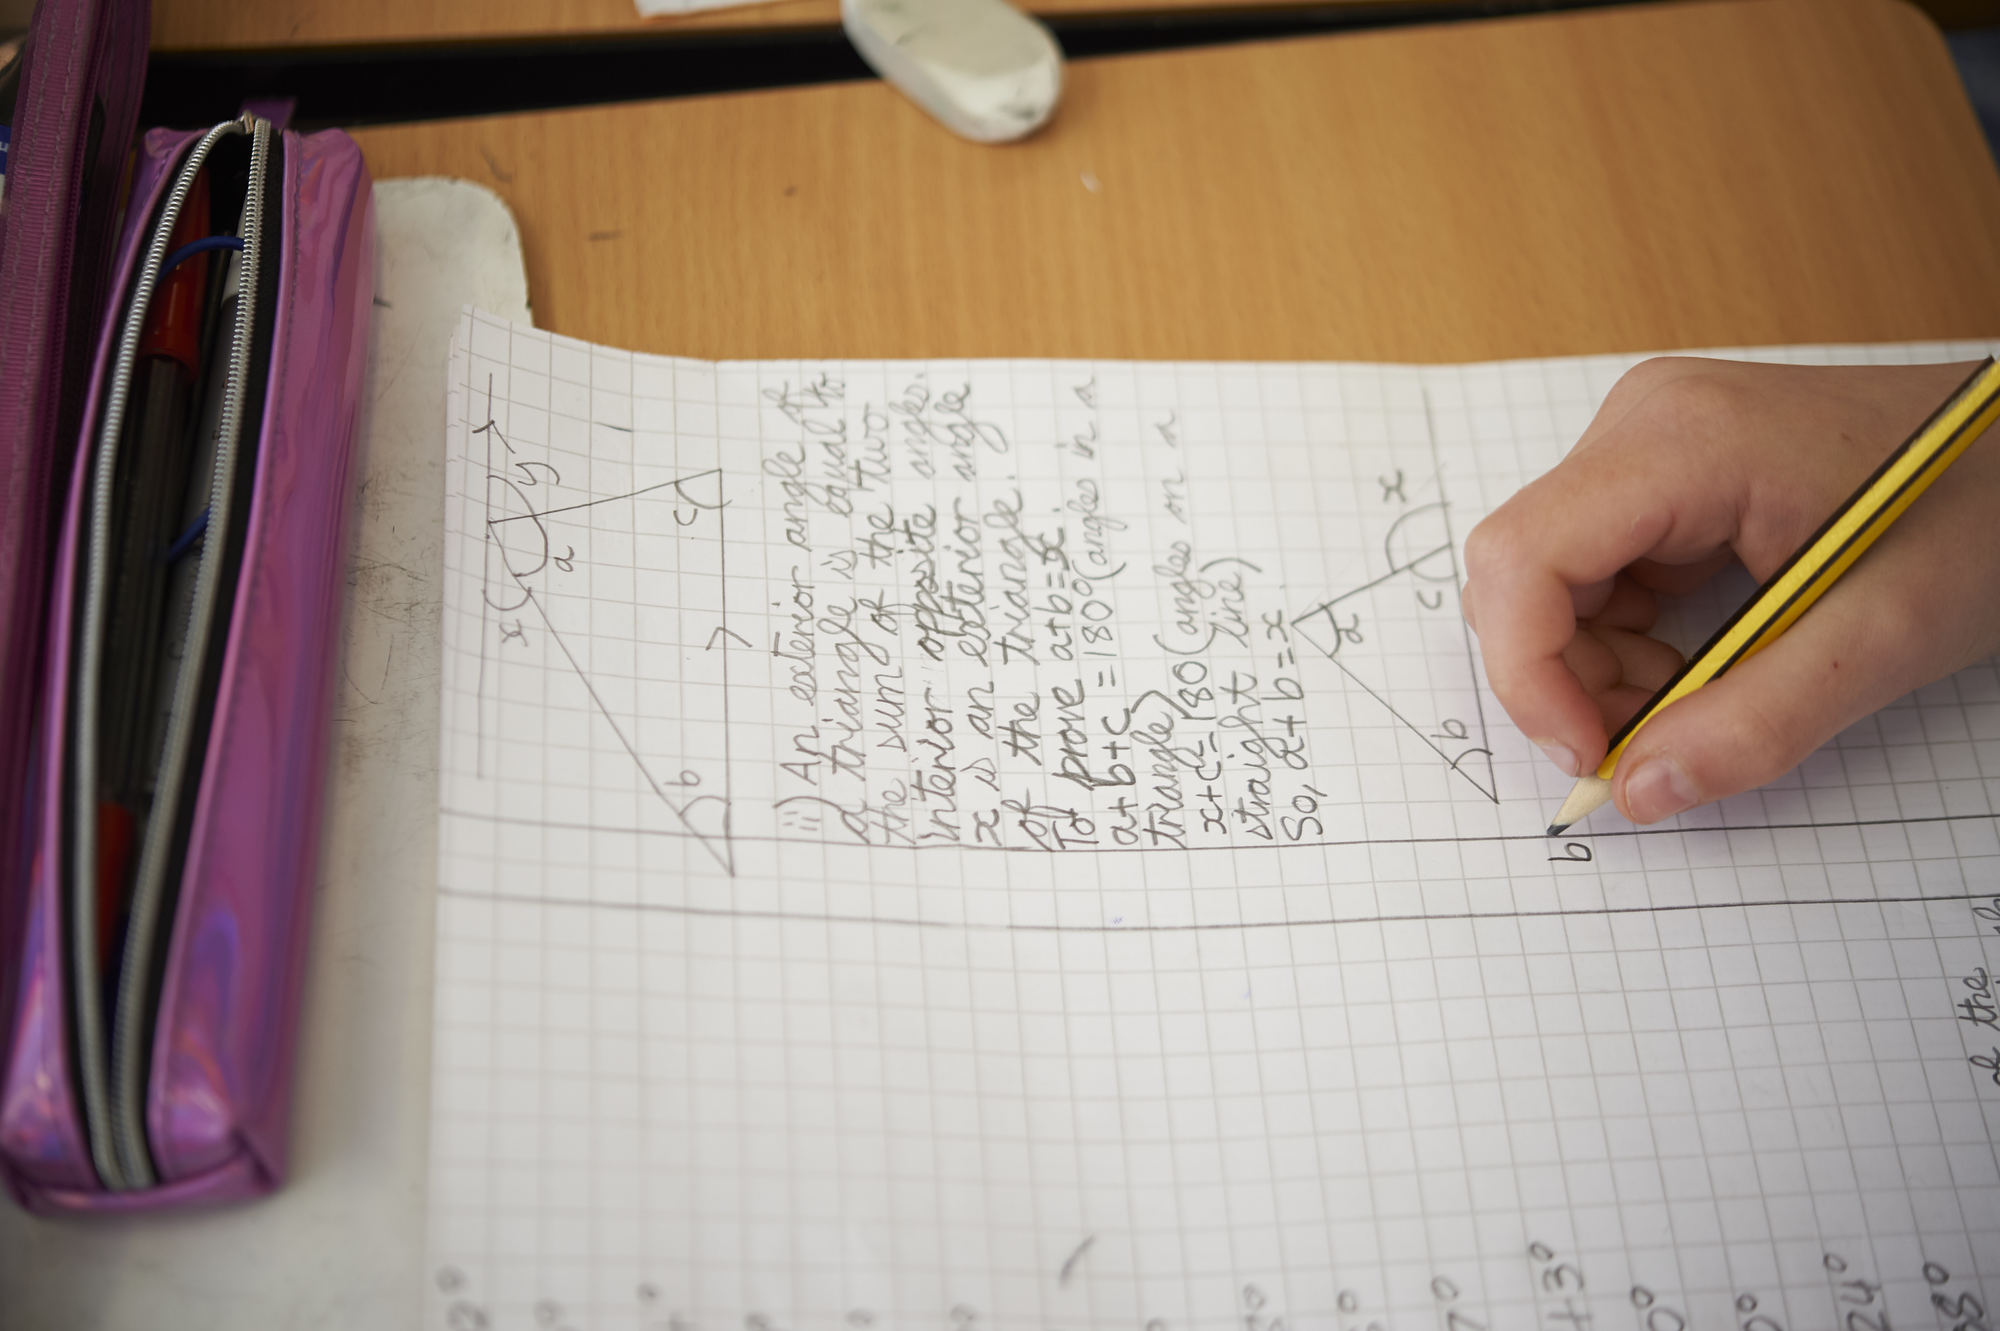 x a y
b c
ii) An exterior angle of
a triangle is equal to
the sum of the two
interior opposite angles.
x is an exterior angle
of the triangle.
To prove a+b=x.
a+b+c=180°(angles in a
triangle)
x+c=180(angles on a
straight line)
So, a+b=x
a
b c x
b
of the
43°
24°